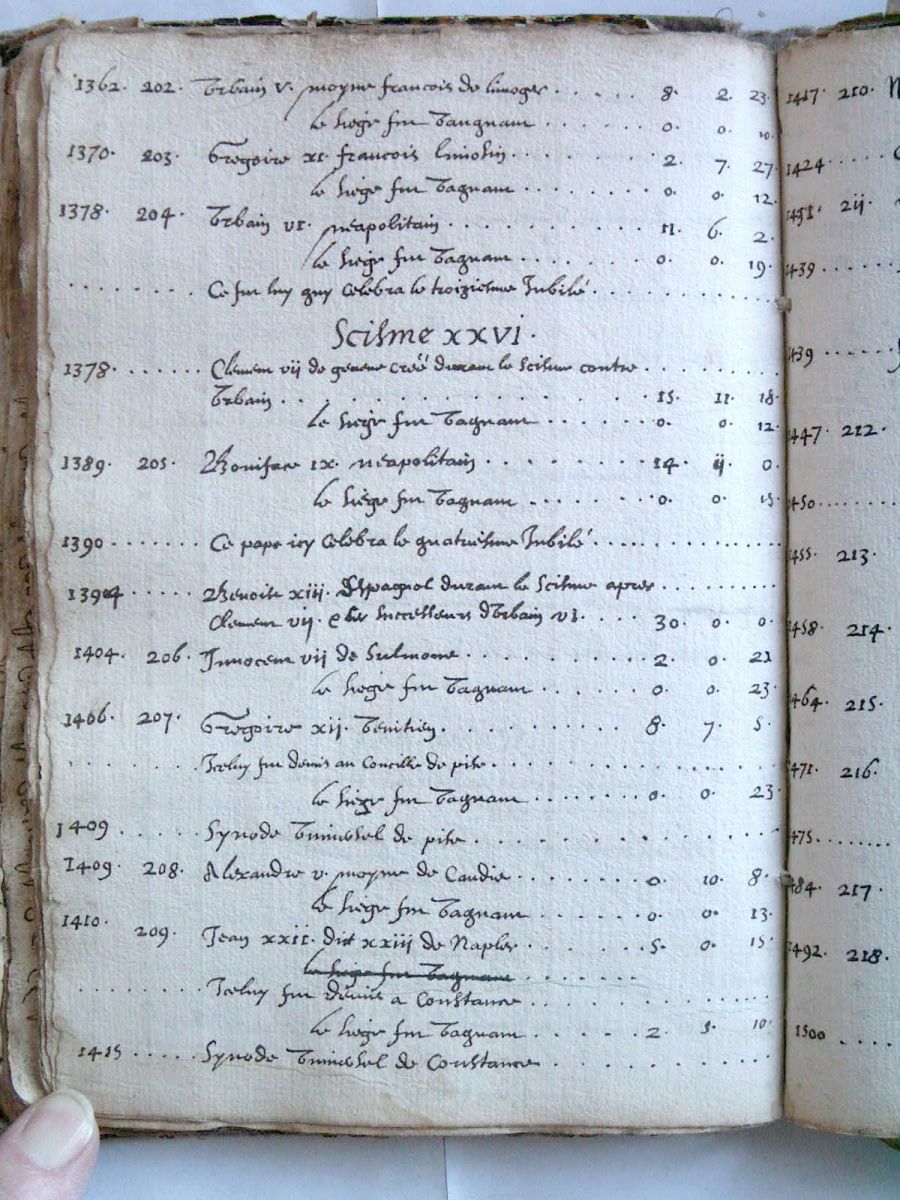 1362. 202. Vrbain v. moyne francois de limoges ..... 8. 2. 23.
le siege fut vaugnant ...... 0. 0. 10.
1370. 203. Gregoire xi. francois limosin ....... 2. 7. 27
le siege fut vagnant ....... 0. 0. 12.
1378. 204. Vrbain vi. neapolitain ......... 11. 6. 2.
le siege fut vagnant ...... 0. 0. 19.
........ Ce fut luy quy celebra le troiziesme Jubilé .........
Scisme xxvi.
1378. ...... Clement vij de geneue creé durant le Scisme contre .......
Vrbain .............. 15. 11. 18.
le siege fut vagnant ...... 0. 0. 12.
1389. 205. Boniface ix. neapolitain ....... 14. ij. 0.
le siege fut vagnant ...... 0. 0. 15
1390 ....... Ce pape icy celebra le quatriesme Jubilé ..........
1394 ...... Benoist xiii. Espagnol durant le Scisme apres ......
Clement vij. & les successeurs d'Vrbain vi ..... 30. 0. 0.
1404. 206. Innocent vij de Sulmone ......... 2. 0. 21
le siege fut vagnant ...... 0. 0. 23.
1406. 207. Gregoire xij. Venitien ........ 8. 7. 5.
....... Iceluy fut demis au Concille de pise ............
le siege fut vagnant ...... 0. 0. 23
1409 ...... Synode vniuersel de pise ............
1409. 208. Alexandre v. moyne de Candie ....... 0. 10. 8.
le siege fut vagnant ..... 0. 0. 13.
1410. 209. Jean xxii. dict xxiij de Naples ...... 5. 0. 15
le siege fut vagnant ........
....... Iceluy fut demis a Constance ..........
le siege fut vagnant ..... 2. 5. 10.
1415 ..... Synode vniuersel de Constance ..........
1417 210.
1424 .....
1431. 211.
1439 ......
1439 .....
1447 212.
1450 ........
1455 213.
1458 214.
1464 215.
1471. 216.
1475 .......
1484. 217.
1492. 218.
1500 ....